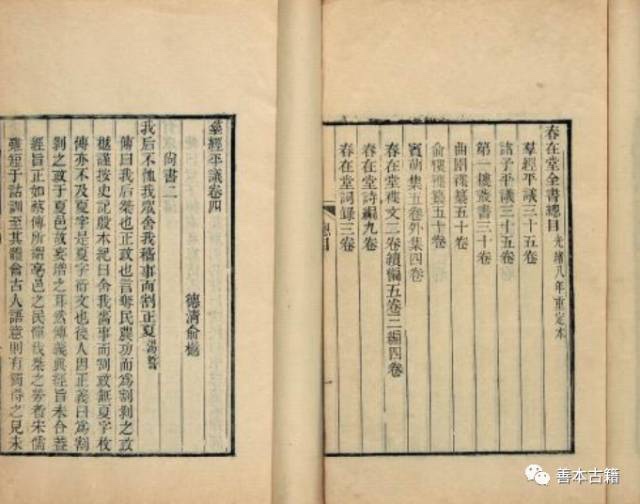 春在堂全書總目 光緒八年重定本
羣經平議三十五卷
諸子平議三十五卷
第一樓叢書三十卷
曲園襍纂五十卷
俞樓襍纂五十卷
賓萌集五卷外集四卷
春在堂襍文二卷續編五卷三編四卷
春在堂詩編九卷
春在堂詞錄三卷
總目
一
羣經平議卷四
德清俞樾
尚書二
我后不恤我眾舍我穡事而割正夏 湯誓
傳曰我后桀也正政也言奪民農功而爲割剝之政
樾謹按史記殷本紀曰舍我嗇事而割政無夏字枚
傳亦不及夏字是夏字衍文也後人因正義曰爲割
剝之政于夏邑故妄增之耳然傳義與經旨未合蓋
經旨正如蔡傳所謂亳邑之民憚我桀之勞者宋儒
雖短于詁訓至其體會古人語意則有獨得之見未
善本古籍